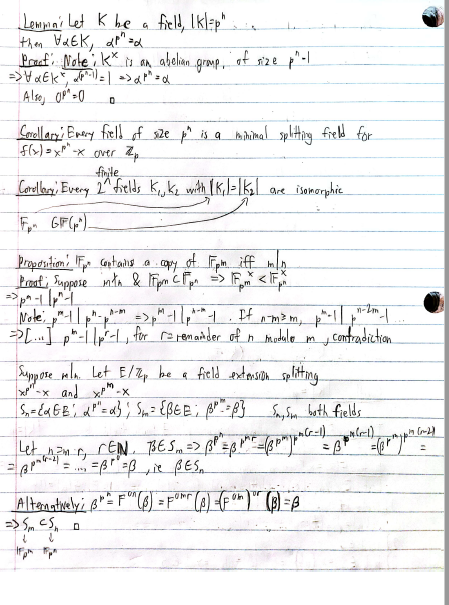 Lemma: Let K be a field, |K|=pⁿ
then ∀α∈K, α^pⁿ=α
Proof: Note: K^x is an abelian group, of size pⁿ-1
=>∀α∈K^x, α^(pⁿ-1)=1 => α^pⁿ=α
Also, 0^pⁿ=0 □
Corollary: Every field of size pⁿ is a minimal splitting field for
f(x)=x^pⁿ-x over ℤ_p
finite
Corollary: Every 2 ^ fields K₁,K₂ with |K₁|=|K₂| are isomorphic
𝔽_pⁿ G𝔽(pⁿ)
Proposition: 𝔽_pⁿ contains a copy of 𝔽_p^m iff m|n
Proof: Suppose m∤n & 𝔽_p^m ⊂ 𝔽_pⁿ => 𝔽_p^m^x < 𝔽_pⁿ^x
=> p^m-1 | pⁿ-1
Note: p^m-1 | pⁿ-p^(n-m) => p^m-1 | p^(n-m)-1. If n-m≥m, p^m-1 | p^(n-2m)-1 ...
=>[...] p^m-1 | p^r-1, for r=remainder of n modulo m, contradiction
Suppose m|n. Let E/ℤ_p be a field extension splitting
x^pⁿ-x and x^p^m-x
Sn={α∈E: α^pⁿ=α}; Sm={β∈E; β^p^m=β} Sn,Sm both fields
Let n=m·r, r∈ℕ. β∈Sm => β^pⁿ=β^p^(mr)=(β^p^m)^p^(m(r-1)) = β^p^(m(r-1)) =(β^p^m)^p^(m(r-2)) =
= β^p^(m(r-2)) = ... = β^p^0 =β, ie β∈Sn
Alternatively: β^pⁿ = F^on(β) = F^omr(β) = (F^om)^or (β) = β
=> Sm ⊂ Sn □
↓ ↓
𝔽_p^m 𝔽_pⁿ